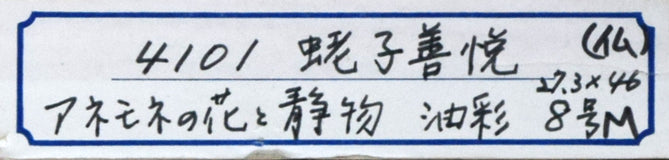 4101 蛯子善悦 (仏)
27.3×46
アネモネの花と静物 油彩 8号M